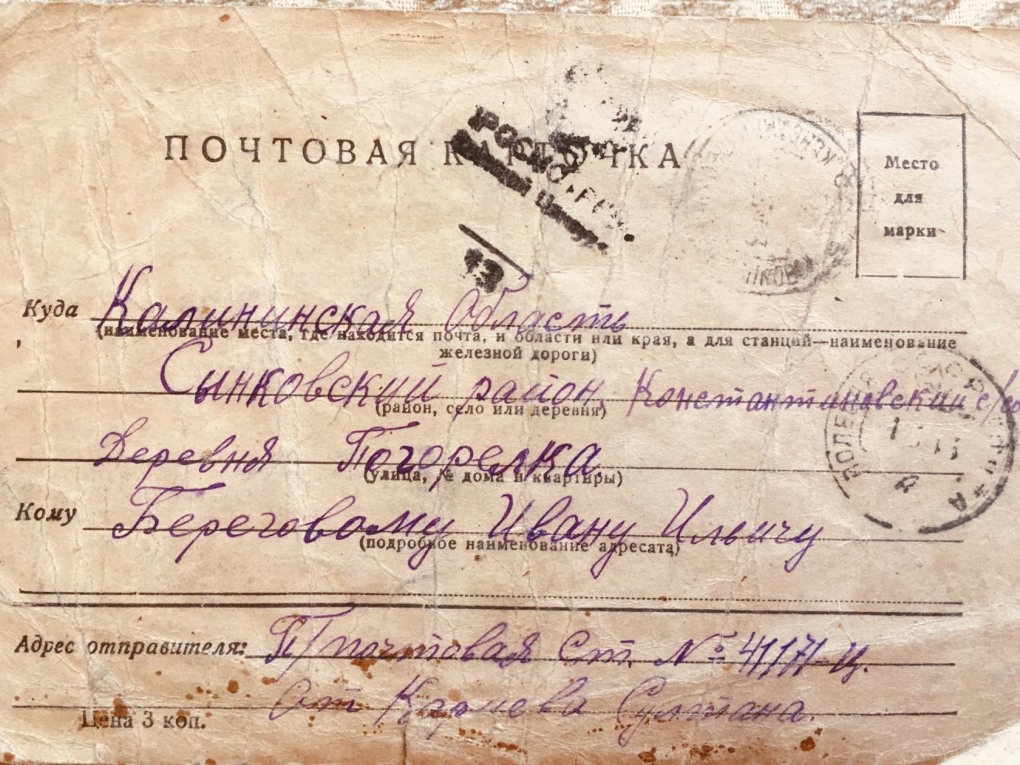 ПОЧТОВАЯ КАРТОЧКА
Место
для
марки
13
Куда Калининская Область
(наименование места, где находится почта, и области или края, а для станций—наименование
железной дороги)
Сынковский район, Константиновский с/со
(район, село или деревня)
Деревня Погорелка.
(улица, № дома и квартиры)
Кому Береговому Ивану Ильичу
(подробное наименование адресата)
Адрес отправителя: П/почтовая Ст. № 41171-ц.
От Султана.
Цена 3 коп.